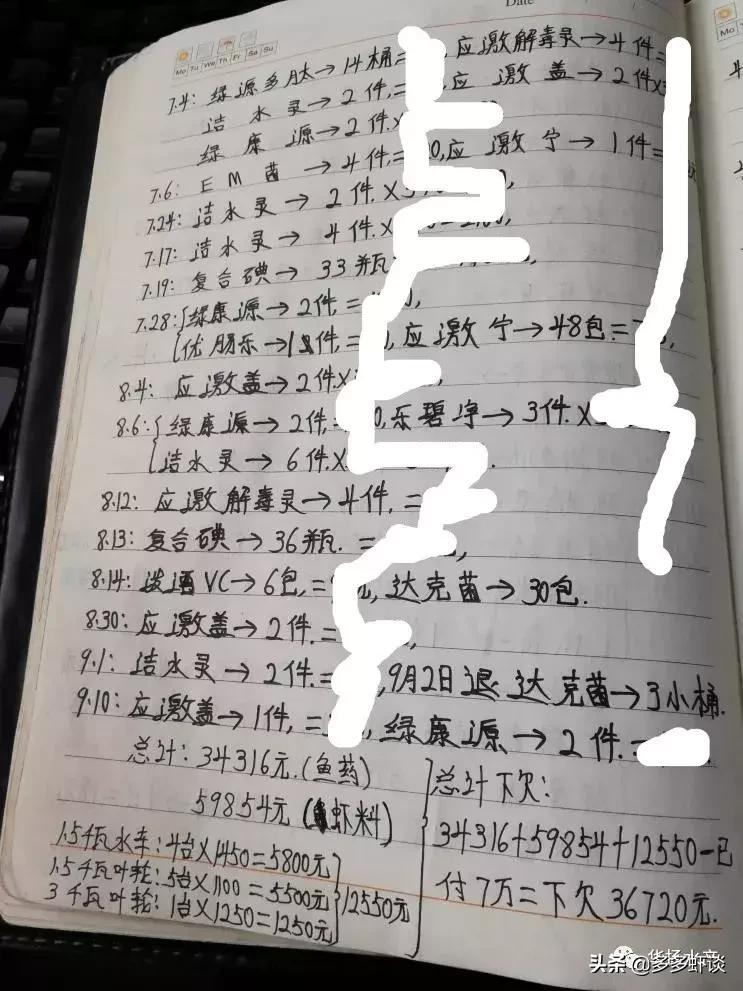 Date
Mo Tu We Th Fr Sa Su
Mo
7.4: 绿源多肽→14桶= 应激解毒灵→4件=
洁水灵→2件.= 应激盖→2件×
绿康源→2件×
7.6: EM菌→4件.= 0,应激宁→1件=
7.24: 洁水灵→2件.×
7.17: 洁水灵→4件.×
7.19: 复合碘→33瓶
7.28: {绿康源→2件.=
优肠乐→1件.= ,应激宁→48包=
8.4: 应激盖→2件×
8.6: {绿康源→2件.= 0,乐碧净→3件.×
洁水灵→6件.×
8.12: 应激解毒灵→4件.=
8.13: 复合碘→36瓶.=
8.14: VC→6包,= 元,达克菌→30包.
8.30: 应激盖→2件.=
9.1: 洁水灵→2件.= ,9月2日退达克菌→3小桶.
9.10: 应激盖→1件,= ,绿康源→2件.=
总计: 34316元.(鱼药)
59854元(虾料)
1.5千瓦水车: 4台×1450=5800元
1.5千瓦叶轮: 5台×1100=5500元
3千瓦叶轮: 1台×1250=1250元
12550元
总计下欠:
34316+59854+12550-已
付7万=下欠36720元.
华扬水产
头条@多多虾谈